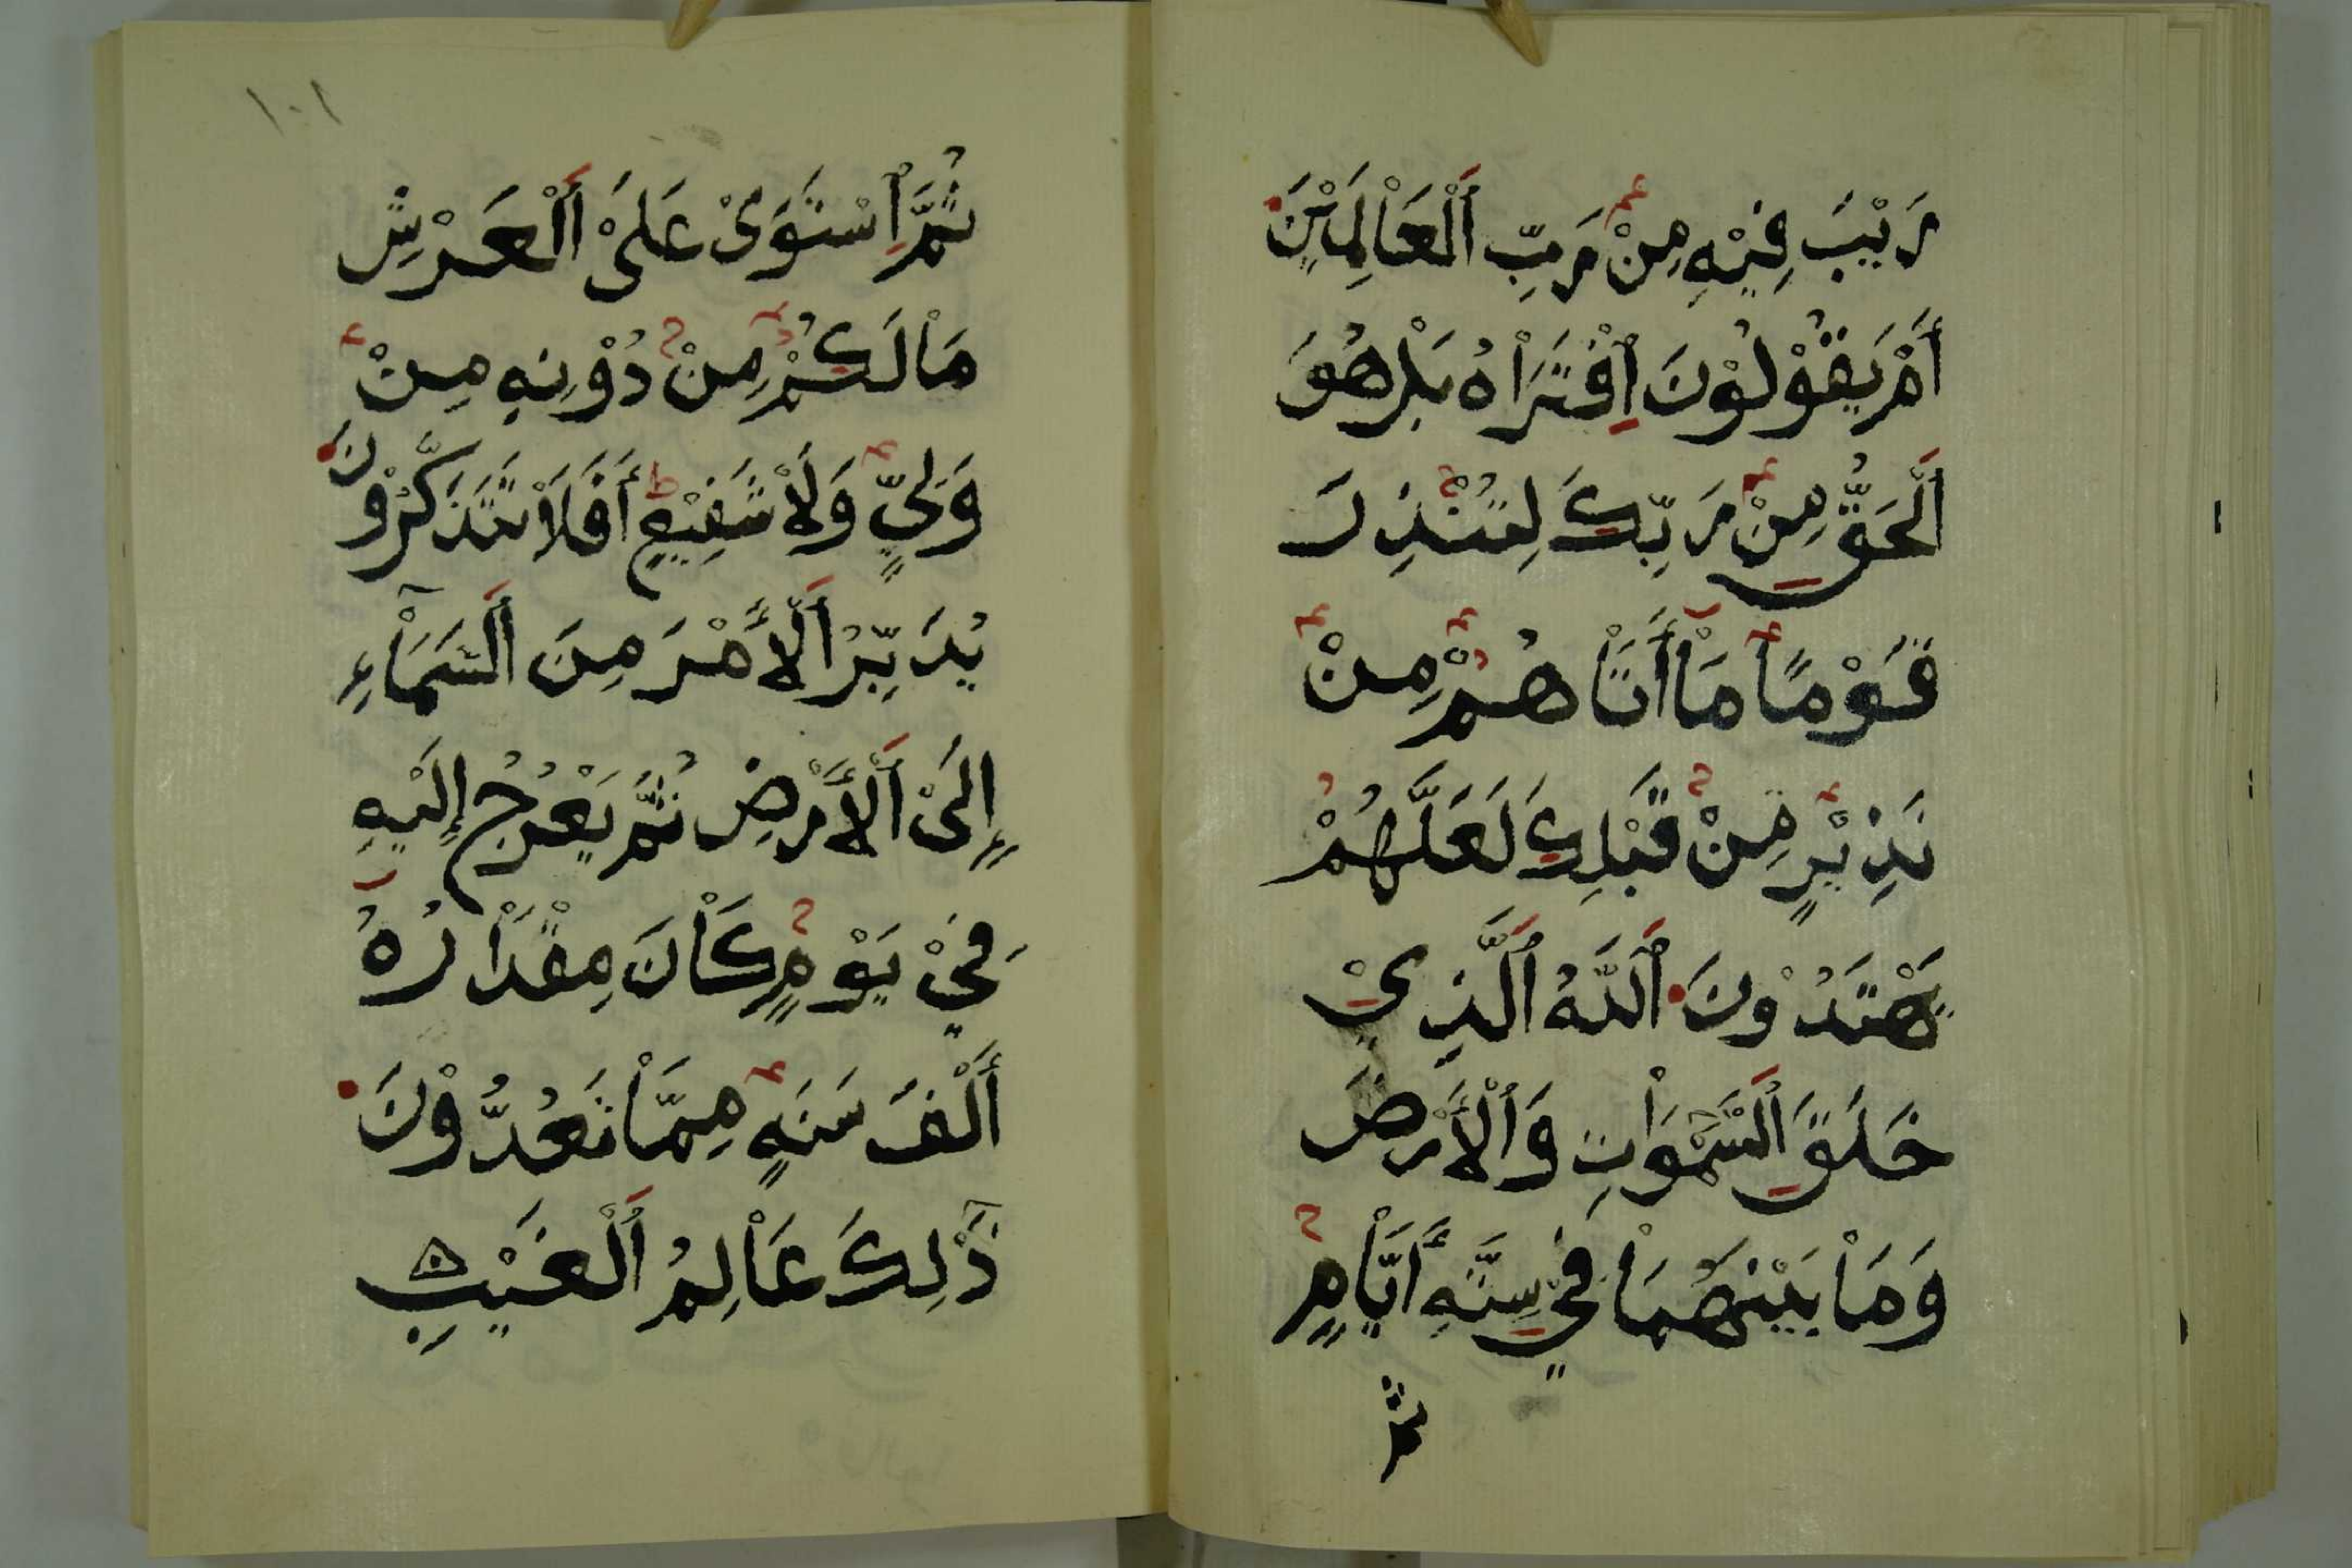 رَيْبَ فِيْهِ مِنْ رَبِّ اَلْعَاْلَمِيْنَ
أَمْ يَقُوْلُوْنَ اِفْتَرَاْهُ بَلْ هُوَ
اَلْحَقُّ مِنْ رَبِّكَ لِتُنْذِرَ
قَوْمًا مَاْ أَتَاْهُمْ مِنْ
نَذِيْرٍ مِنْ قَبْلِكَ لَعَلَّهُمْ
يَهْتَدُوْنَ اَللَّهُ اَلَّذِيْ
خَلَقَ اَلسَّمْوَاْتِ وَاْلأَرْضَ
وَمَاْ بَيْنَهُمَاْ فِيْ سِتَّةِ أَيَّاْمٍ
ثم
١٠١
ثُمَّ اِسْتَوَىْ عَلَىْ اَلْعَرْشِ
مَاْلَكُمْ مِنْ دُوْنِهِ مِنْ
وَلِيٍّ وَلَاْ شَفِيْعٍ أَفَلَاْ تَتَذَكَّرُوْنَ
يُدَبِّرُ اَلْأَمْرَ مِنَ اَلسَّمَاْءِ
إِلَىْ اَلْأَرْضِ ثُمَّ يَعْرُجُ إِلَيْهِ
فِيْ يَوْمٍ كَاْنَ مِقْدَاْرُهُ
أَلْفَ سَنَةٍ مِمَّاْ تَعُدُّوْنَ
ذَلِكَ عَاْلِمُ اَلْغَيْبِ